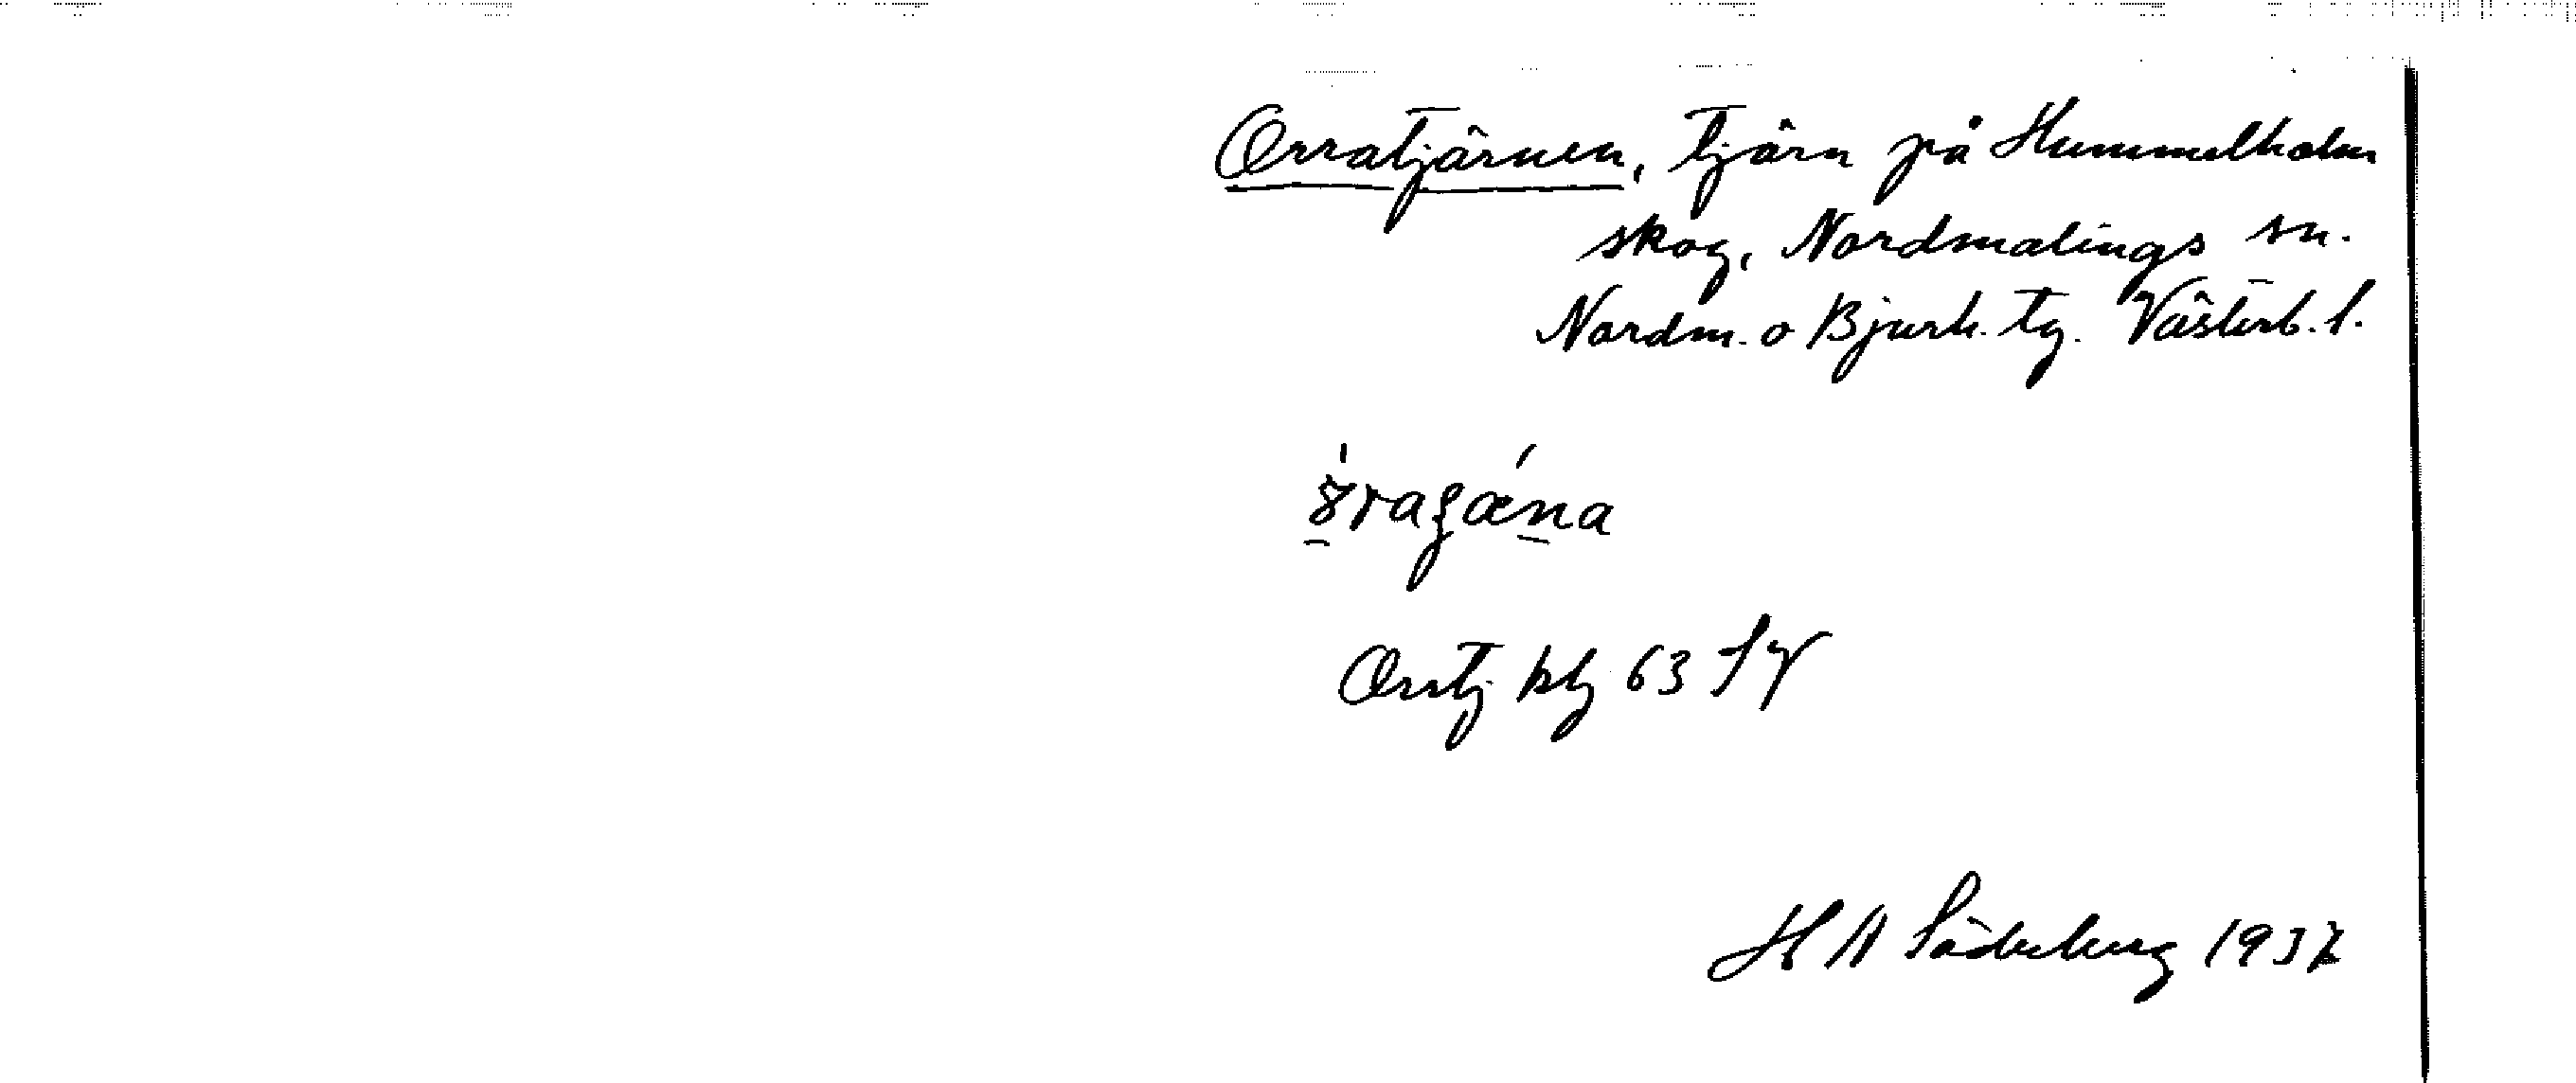 Orratjärnen, tjärn på Hummelholm
skog, Nordmalings sn.
Nordm. o Bjurh. tg. Västerb. l.
Orrtj kbl 63 SV
H A Söderberg 1937